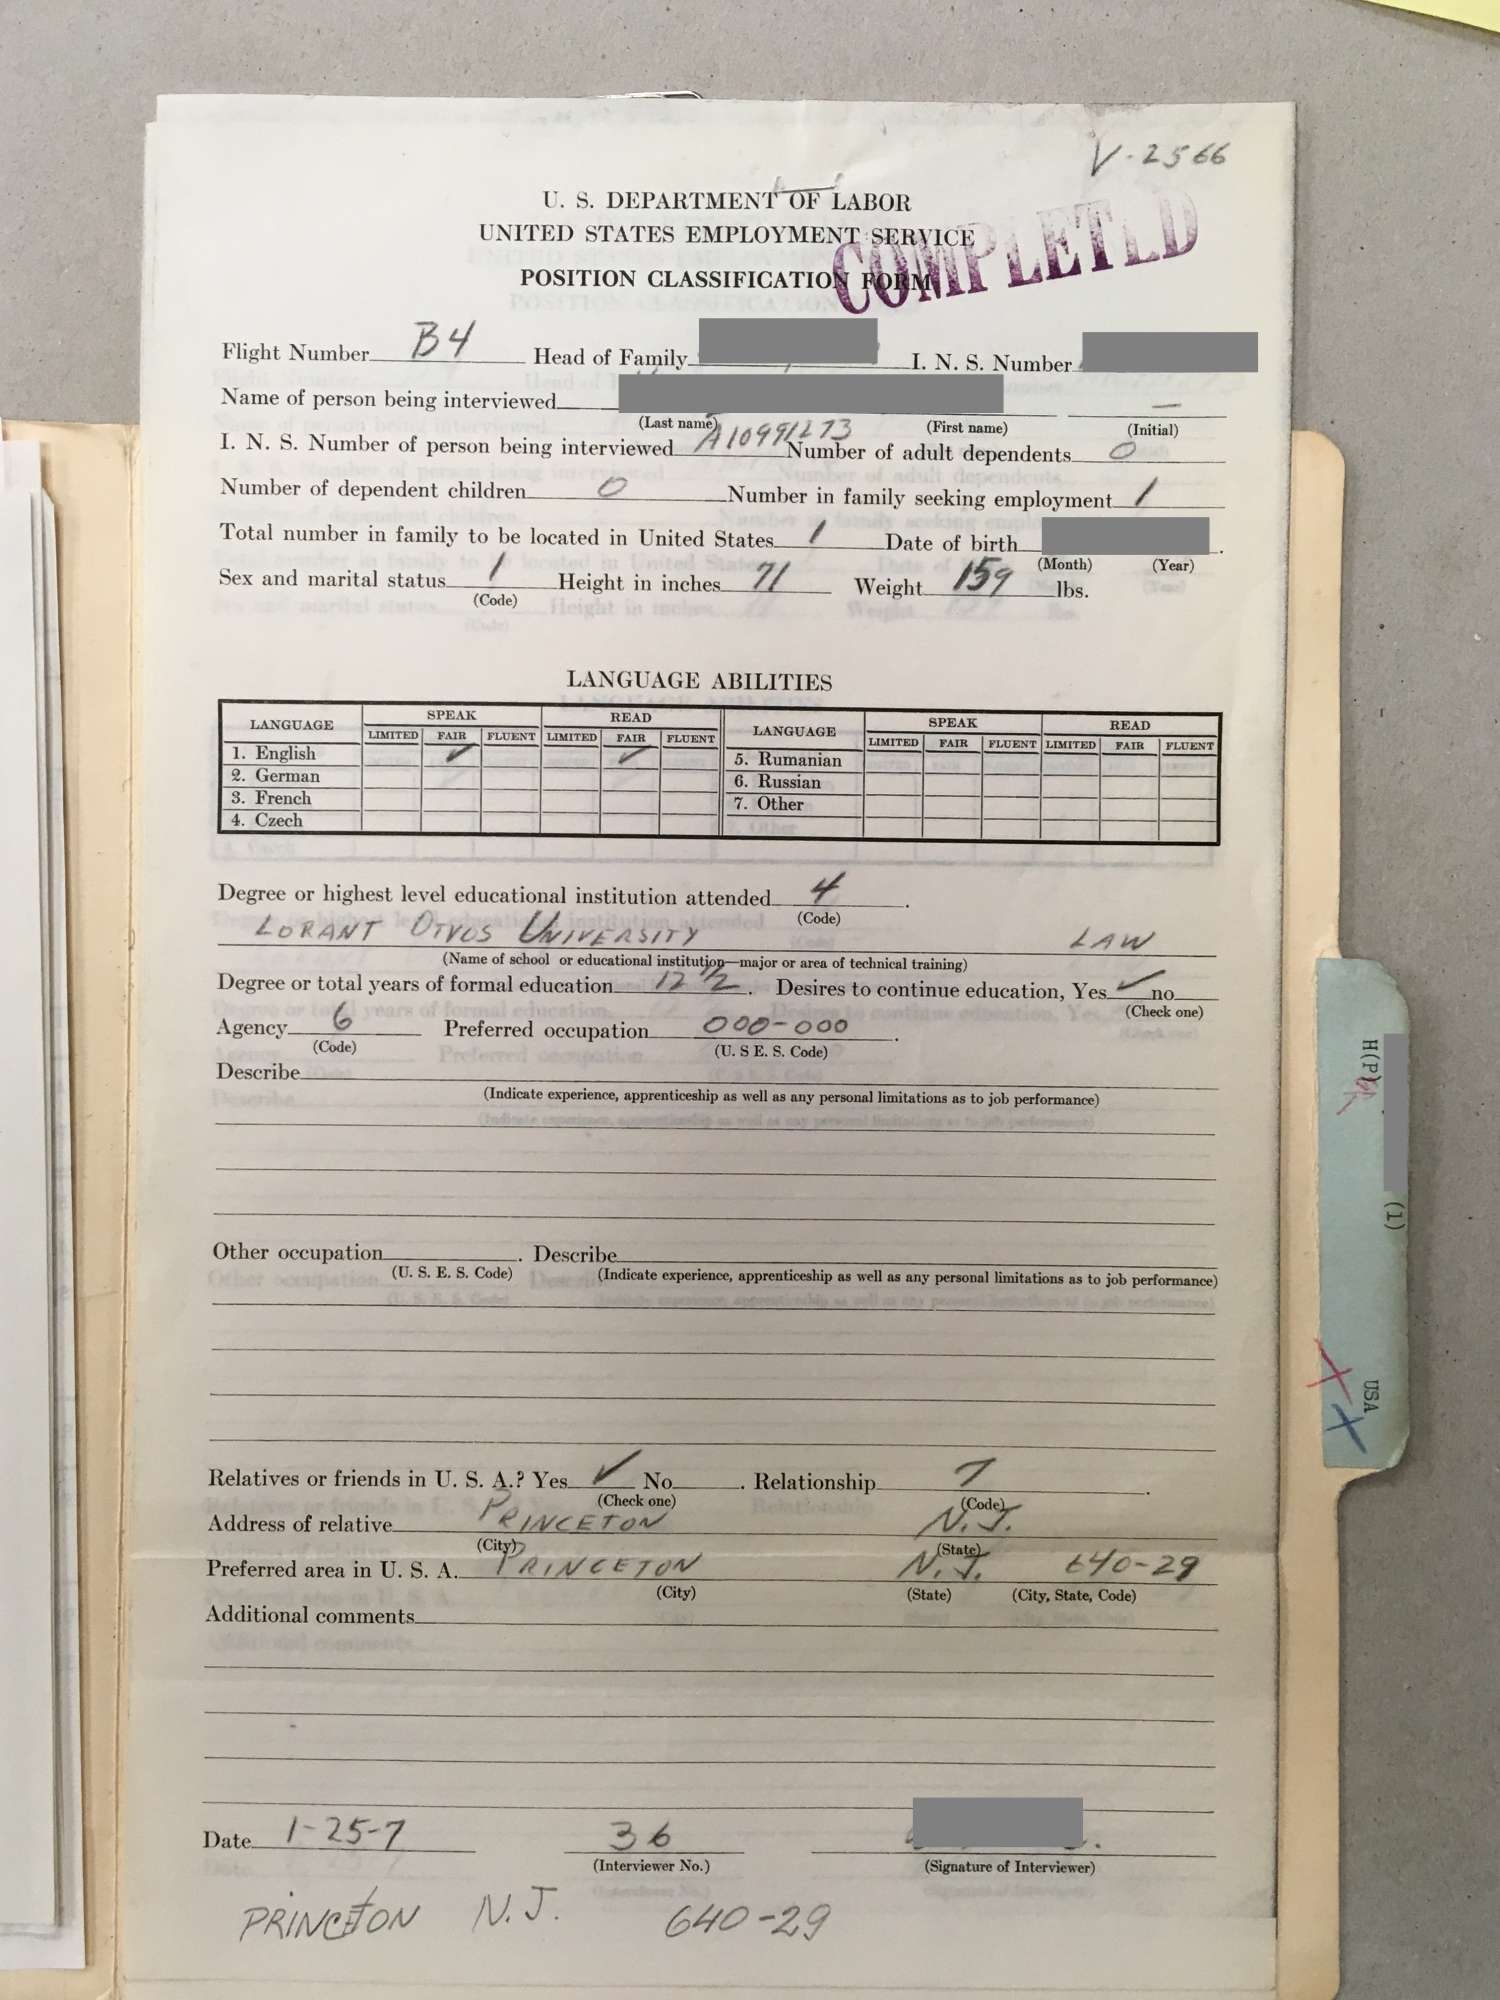 V-2566
U. S. DEPARTMENT OF LABOR
UNITED STATES EMPLOYMENT SERVICE
POSITION CLASSIFICATION FORM
COMPLETED
Flight Number B4 Head of Family I. N. S. Number
Name of person being interviewed —
(Last name) (First name) (Initial)
I. N. S. Number of person being interviewed A10991273 Number of adult dependents 0
Number of dependent children 0 Number in family seeking employment 1
Total number in family to be located in United States 1 Date of birth .
(Month) (Year)
Sex and marital status 1 Height in inches 71 Weight 159 lbs.
(Code)
LANGUAGE ABILITIES
LANGUAGE SPEAK READ LANGUAGE SPEAK READ
LIMITED FAIR FLUENT LIMITED FAIR FLUENT LIMITED FAIR FLUENT LIMITED FAIR FLUENT
1. English ✓ ✓ 5. Rumanian
2. German 6. Russian
3. French 7. Other
4. Czech
Degree or highest level educational institution attended 4 .
(Code)
LORANT OTVOS UNIVERSITY LAW
(Name of school or educational institution—major or area of technical training)
Degree or total years of formal education 12 1/2 . Desires to continue education, Yes ✓ no
(Check one)
Agency 6 Preferred occupation 000-000 .
(Code) (U. S E. S. Code)
Describe
(Indicate experience, apprenticeship as well as any personal limitations as to job performance)
Other occupation . Describe
(U. S. E. S. Code) (Indicate experience, apprenticeship as well as any personal limitations as to job performance)
Relatives or friends in U. S. A.? Yes ✓ No . Relationship 7 .
(Check one) (Code)
Address of relative PRINCETON N.J.
(City) (State)
Preferred area in U. S. A. PRINCETON N.J. 640-29
(City) (State) (City, State, Code)
Additional comments
Date 1-25-7 36
(Interviewer No.) (Signature of Interviewer)
PRINCETON N.J. 640-29
H(P)
(1)
USA